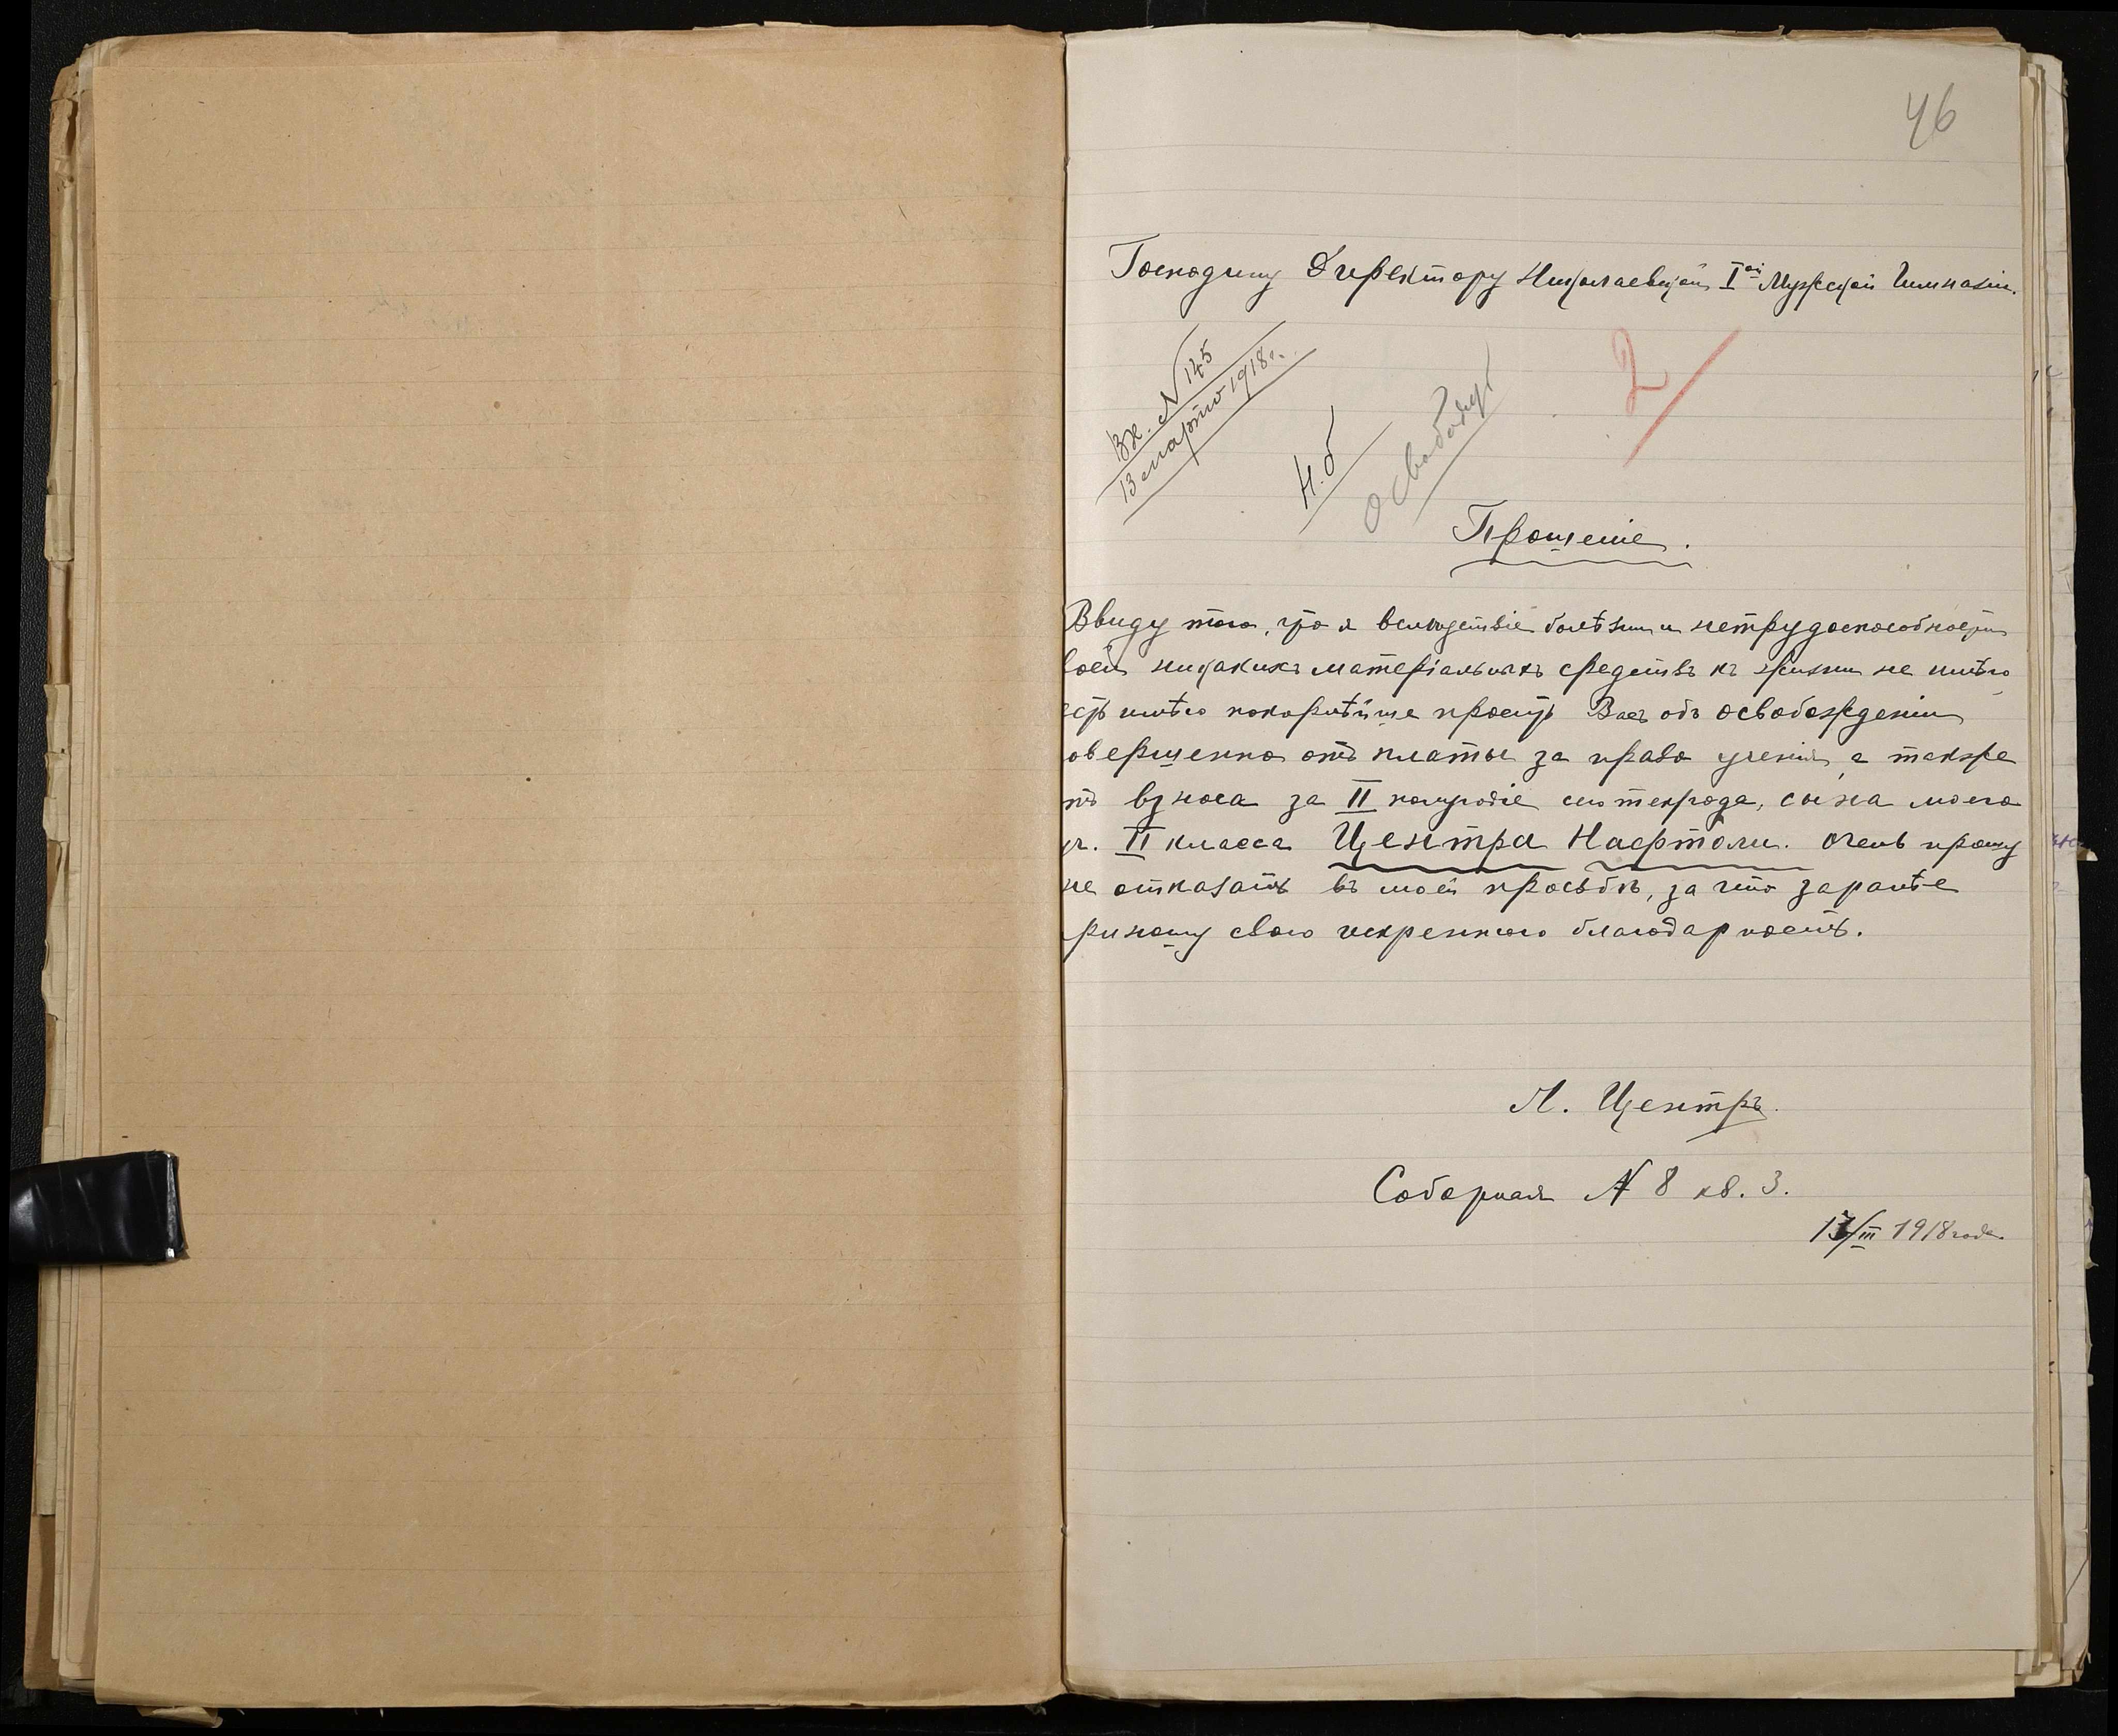 46
Господину Директору Николаевской Iой Мужской Гимназіи.
Вх. N 145
13 марта 1918 г.
Н. б
Освободить
2
Прошеніе.
Ввиду того, что я вслѣдствіе болѣзни и нетрудоспособности
воей никакихъ матеріальныхъ средствъ къ жизни не имѣю
есть имѣю покорнѣйше просить Васъ объ освобожденіи
овершенно отъ платы за право ученія, а также
тъ взноса за II полугодіе сего года, сына моего
уч. II класса Центра Нафтоли. Очень прошу
не отказать въ моей просьбѣ, за что заранѣе
риношу свою искреннюю благодарность.
Центръ
Соборная N 8 кв. 3.
13/III 1918 года